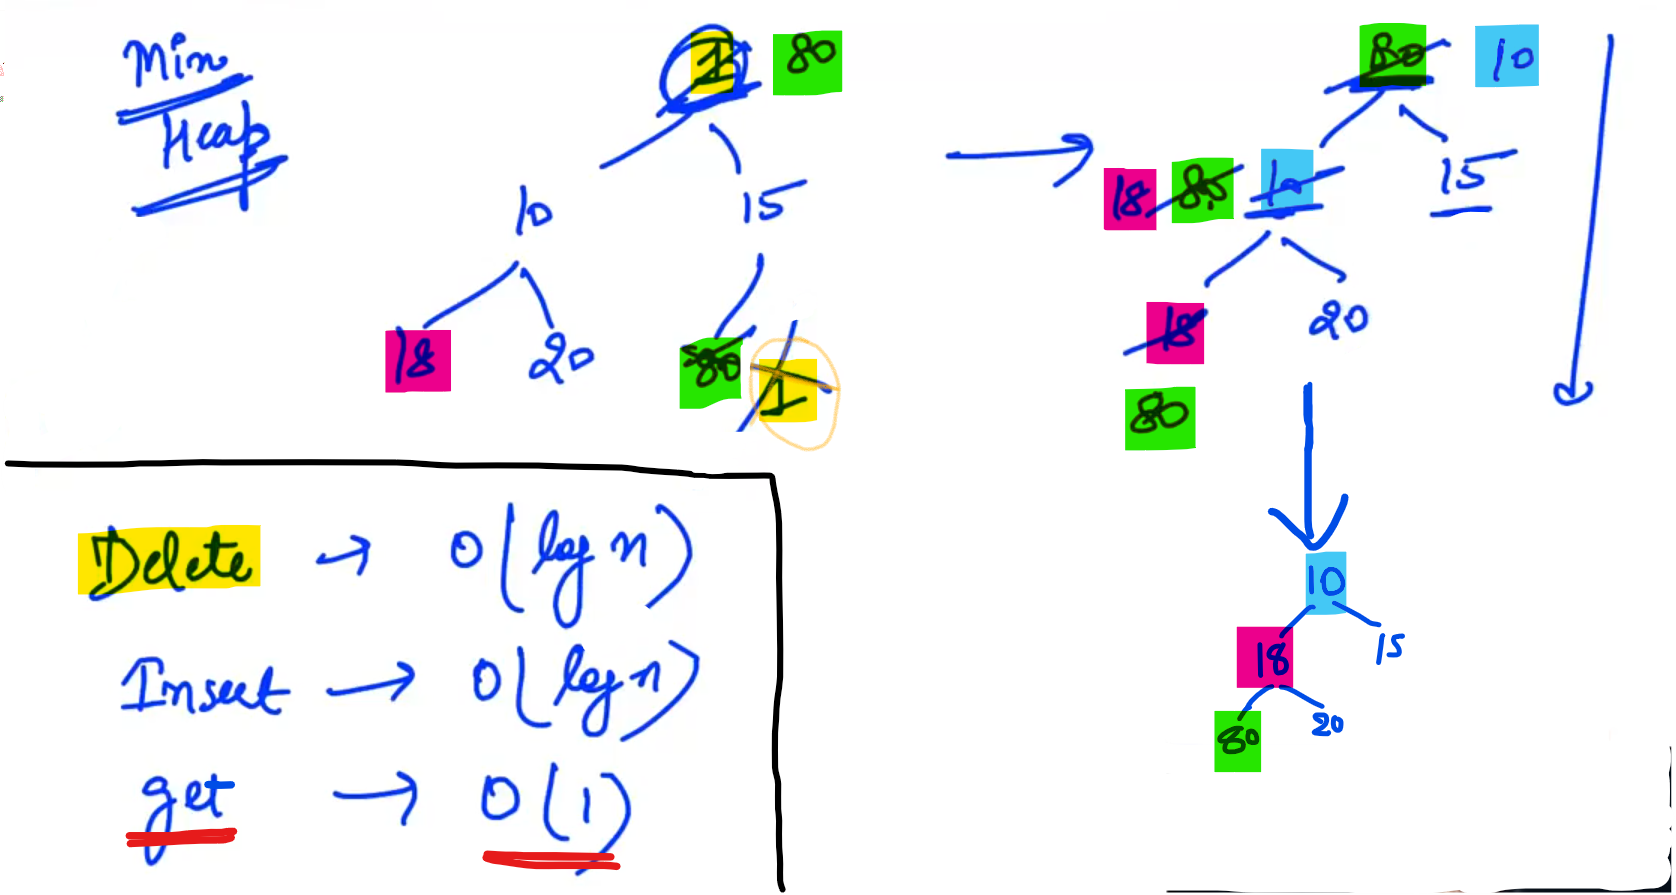 Min
Heap
1 80
10 15
18 20 80 1
80 10
18 80 10 15
18 20
80
10
18 15
80 20
Delete → O(log n)
Insert → O(log n)
get → O(1)